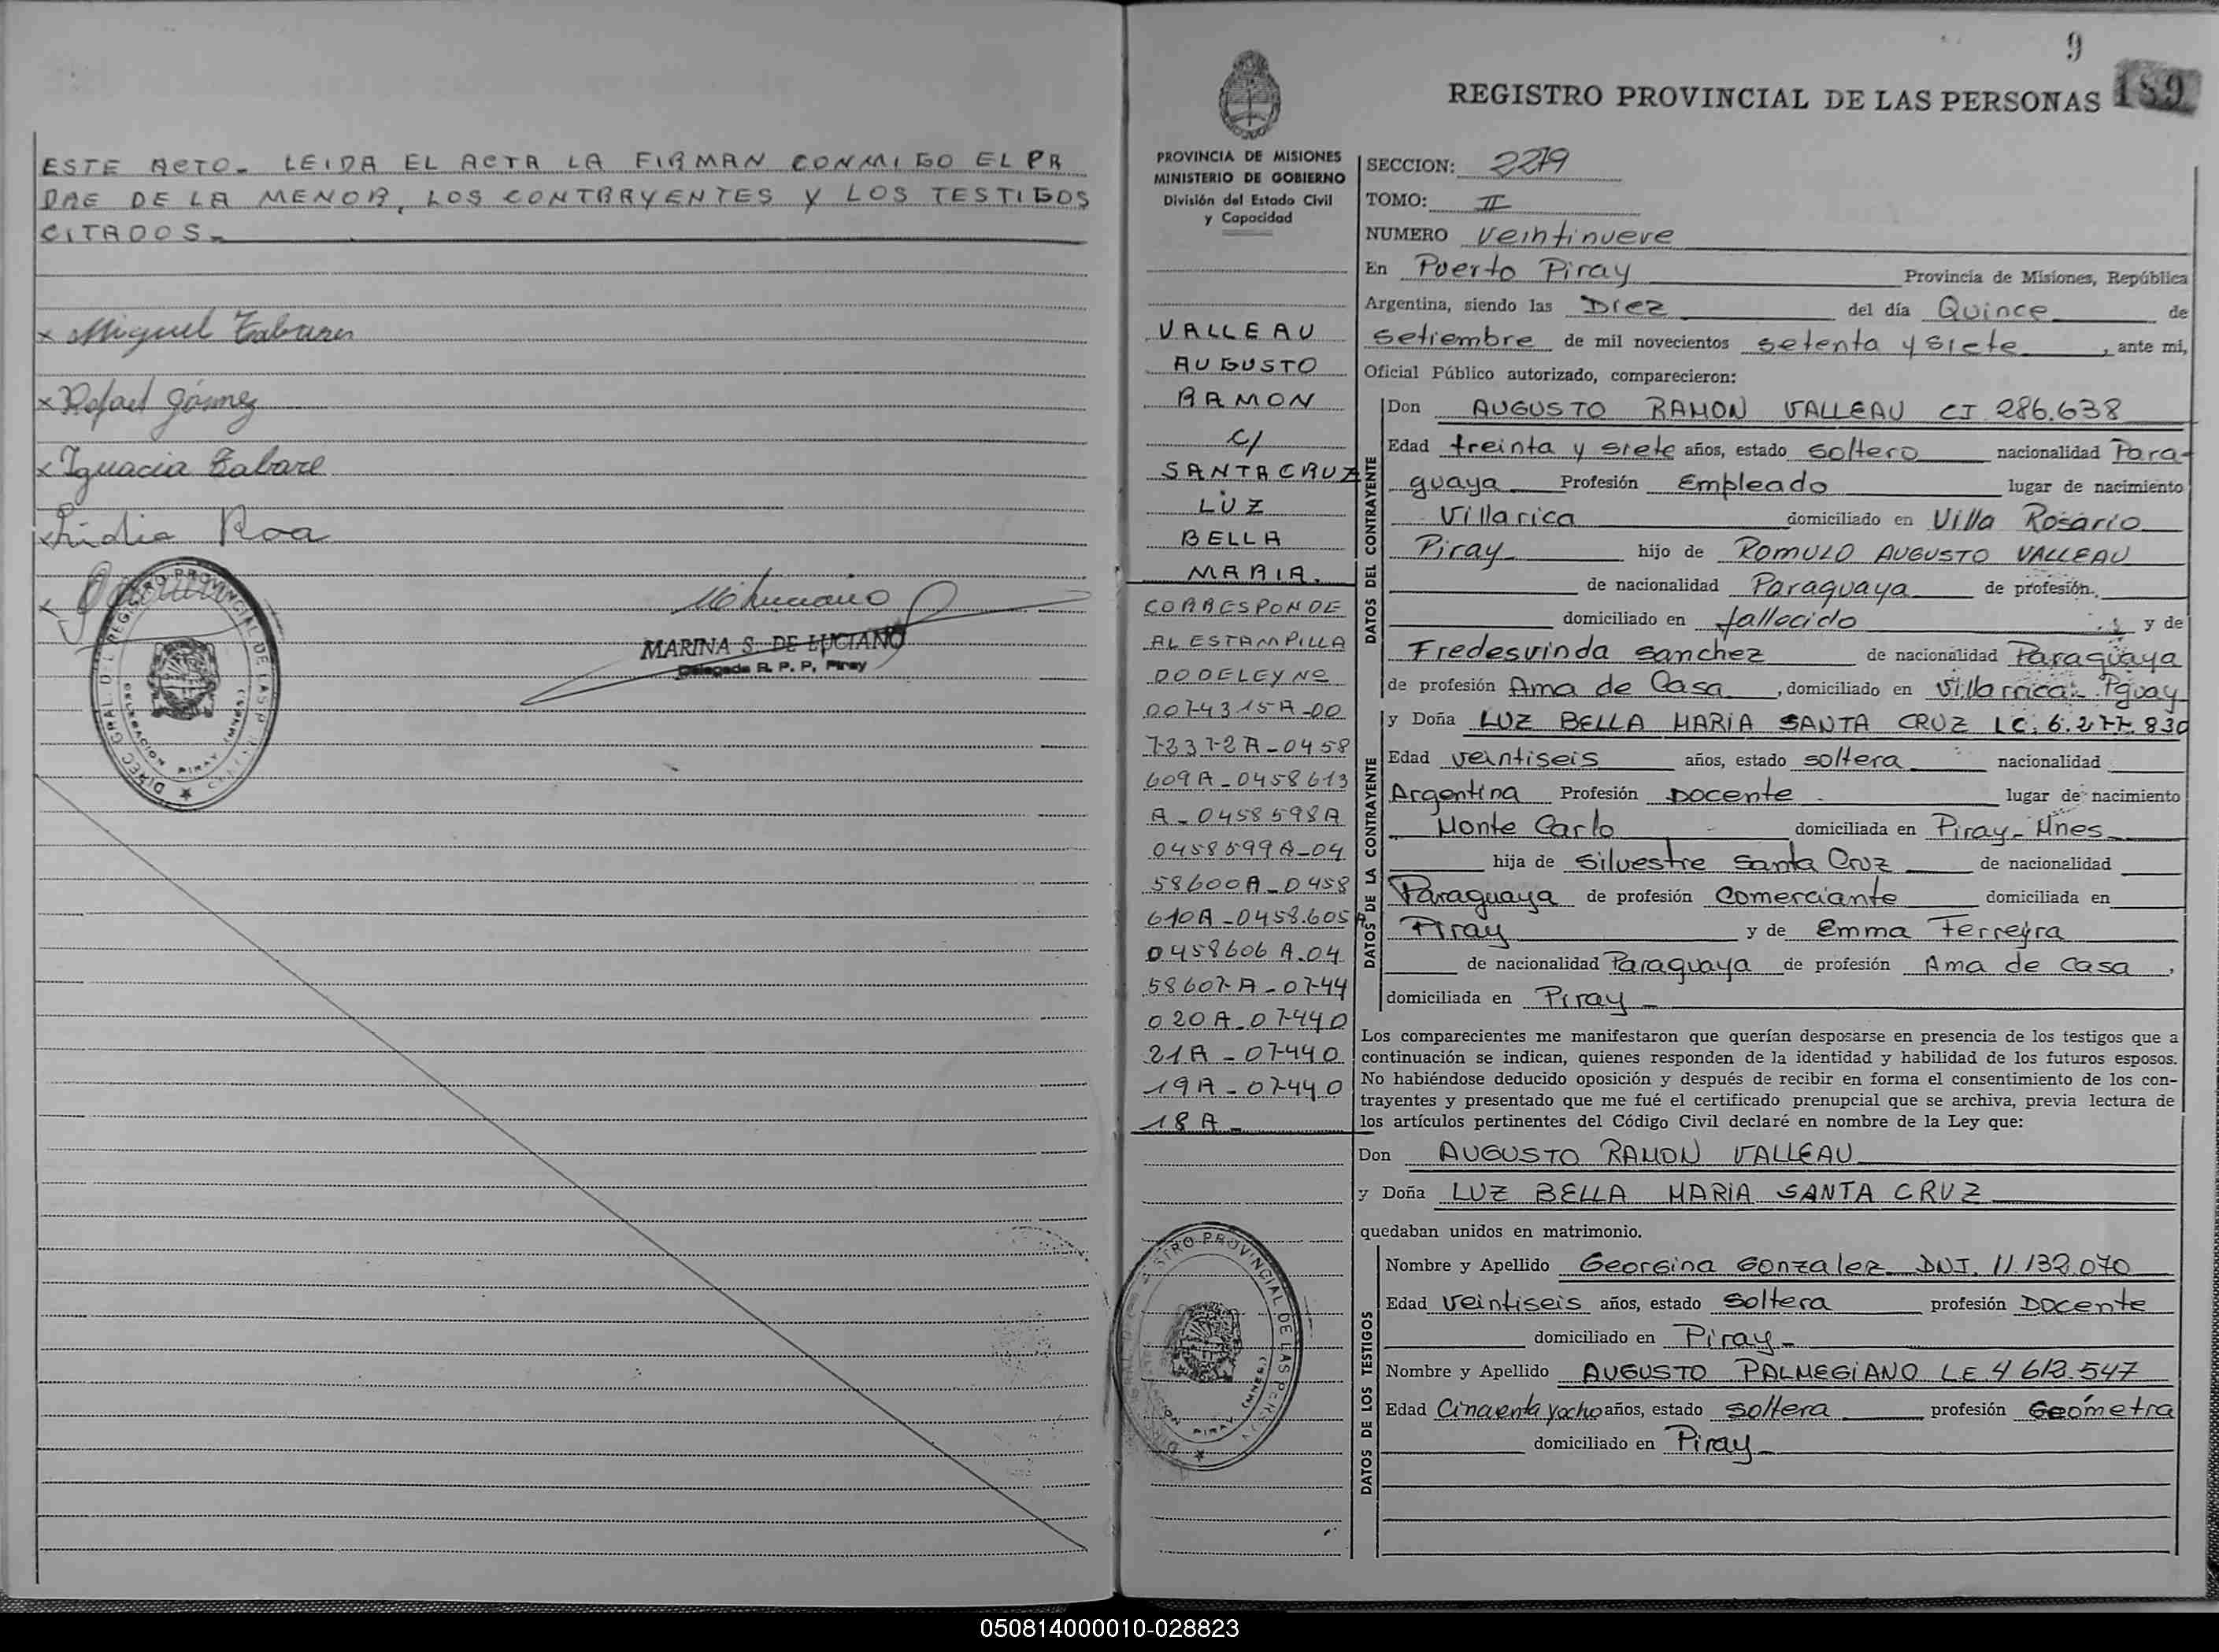 ESTE ACTO. LEIDA EL ACTA LA FIRMAN CONMIGO EL PA
DRE DE LA MENOR, LOS CONTRAYENTES Y LOS TESTIGOS
CITADOS.
x Miguel Tabares
x Rafael Gómez
x Ignacia Tabare
x Lidia Roa
MARINA S. DE LUCIANO
Delegada R. P. P. Piray
DIREC. GRAL. DEL REGISTRO PROVINCIAL DE LAS P
DELEGACION PIRAY (MNES)
9
REGISTRO PROVINCIAL DE LAS PERSONAS 189
PROVINCIA DE MISIONES
MINISTERIO DE GOBIERNO
División del Estado Civil
y Capacidad
VALLEAU
AUGUSTO
RAMON
C/
SANTA CRUZ
LUZ
BELLA
MARIA.
CORRESPONDE
AL ESTAMPILLA
DO DE LEY Nº
0074315A-00
72372A-0458
609A-0458613
A-0458598A
0458599A-04
58600A-0458
610A-0458.605A
0458606A.04
58607A-0744
020A.07440
21A-07440
19A-07440
18A-
SECCION: 2279
TOMO: II
NUMERO veintinueve
En Puerto Piray Provincia de Misiones, República
Argentina, siendo las Diez del día Quince de
setiembre de mil novecientos setenta y siete, ante mi,
Oficial Público autorizado, comparecieron:
DATOS DEL CONTRAYENTE
Don AUGUSTO RAMON VALLEAU CI 286.638
Edad treinta y siete años, estado soltero nacionalidad Para-
guaya Profesión Empleado lugar de nacimiento
Villarica domiciliado en Villa Rosario
Piray hijo de ROMULO AUGUSTO VALLEAU
de nacionalidad Paraguaya de profesión
domiciliado en fallecido y de
Fredesvinda sanchez de nacionalidad Paraguaya
de profesión Ama de Casa, domiciliado en Villarrica. Pguay
DATOS DE LA CONTRAYENTE
y Doña LUZ BELLA MARIA SANTA CRUZ LC. 6.277.830
Edad veintiseis años, estado soltera nacionalidad
Argentina Profesión Docente lugar de nacimiento
Monte Carlo domiciliada en Piray-Mnes
hija de Silvestre Santa Cruz de nacionalidad
Paraguaya de profesión Comerciante domiciliada en
Piray y de Emma Ferreyra
de nacionalidad Paraguaya de profesión Ama de casa,
domiciliada en Piray
Los comparecientes me manifestaron que querían desposarse en presencia de los testigos que a
continuación se indican, quienes responden de la identidad y habilidad de los futuros esposos.
No habiéndose deducido oposición y después de recibir en forma el consentimiento de los con-
trayentes y presentado que me fué el certificado prenupcial que se archiva, previa lectura de
los artículos pertinentes del Código Civil declaré en nombre de la Ley que:
Don AUGUSTO RAMON VALLEAU
y Doña LUZ BELLA MARIA SANTA CRUZ
quedaban unidos en matrimonio.
DATOS DE LOS TESTIGOS
Nombre y Apellido Georgina Gonzalez DNI. 11.132.070
Edad Veintiseis años, estado soltera profesión Docente
domiciliado en Piray
Nombre y Apellido AUGUSTO PALMEGIANO LE 4 612.547
Edad Cincuenta y ocho años, estado soltera profesión Geómetra
domiciliado en Piray
PIRAY (MNES)
050814000010-028823